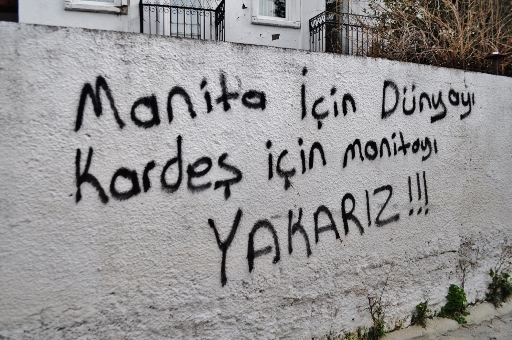 Manita İçin Dünyayı
Kardeş için manitayı
YAKARIZ!!!